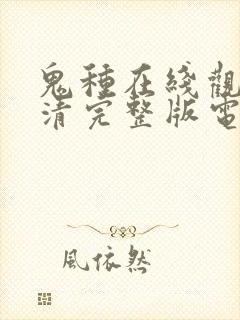 鬼種在綫觀
清完整版電
風依然